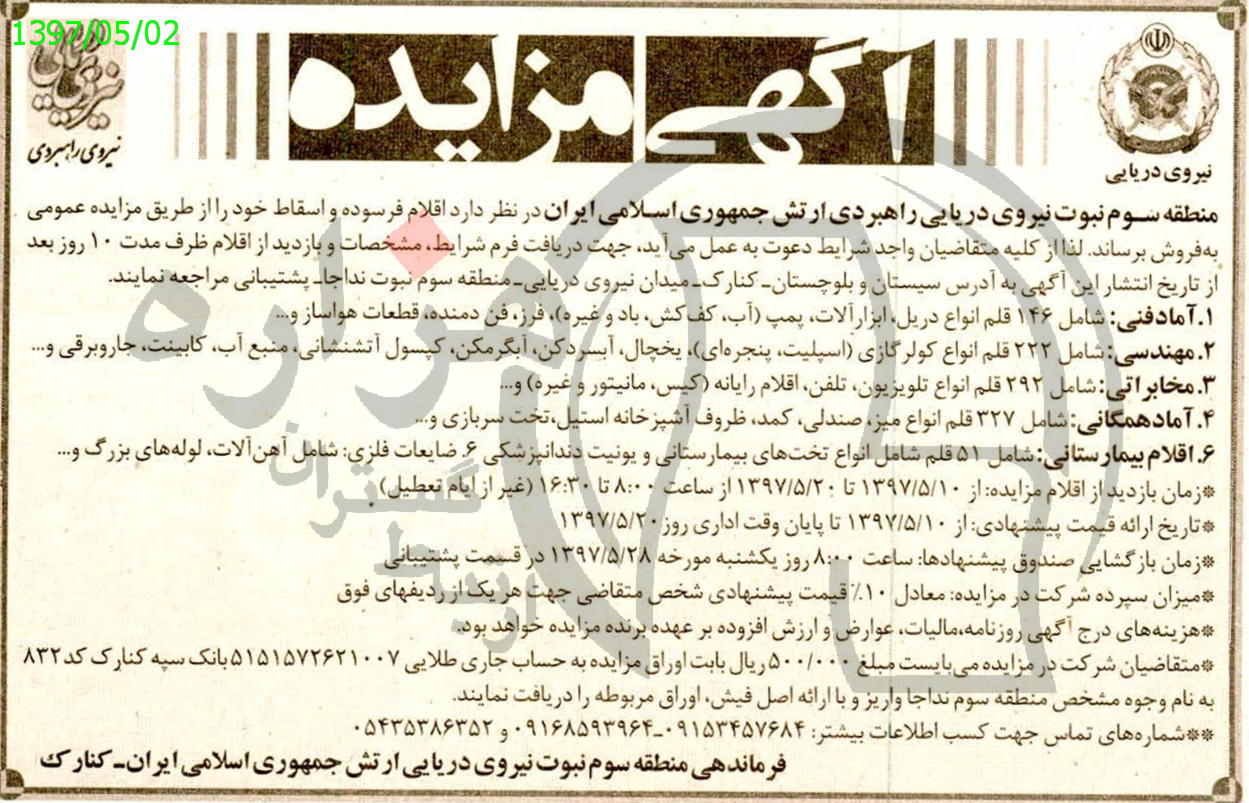 1397/05/02
آگهی مزایده
نیروی راهبردی
نیروی دریایی
منطقه سوم نبوت نیروی دریایی راهبردی ارتش جمهوری اسلامی ایران در نظر دارد اقلام فرسوده و اسقاط خود را از طریق مزایده عمومی
به‌فروش برساند. لذا از کلیه متقاضیان واجد شرایط دعوت به عمل می‌آید، جهت دریافت فرم شرایط، مشخصات و بازدید از اقلام ظرف مدت ۱۰ روز بعد
از تاریخ انتشار این آگهی به آدرس سیستان و بلوچستان- کنارک- میدان نیروی دریایی- منطقه سوم نبوت نداجا- پشتیبانی مراجعه نمایند.
۱. آماد فنی: شامل ۱۴۶ قلم انواع دریل، ابزارآلات، پمپ (آب، کف‌کش، باد و غیره)، فرز، فن دمنده، قطعات هواساز و...
۲. مهندسی: شامل ۲۲۲ قلم انواع کولر گازی (اسپلیت، پنجره‌ای)، یخچال، آبسردکن، آبگرمکن، کپسول آتشنشانی، منبع آب، کابینت، جاروبرقی و...
۳. مخابراتی: شامل ۲۹۲ قلم انواع تلویزیون، تلفن، اقلام رایانه (کیس، مانیتور و غیره) و...
۴. آماد همگانی: شامل ۳۲۷ قلم انواع میز، صندلی، کمد، ظروف آشپزخانه استیل، تخت سربازی و...
۶. اقلام بیمارستانی: شامل ۵۱ قلم شامل انواع تخت‌های بیمارستانی و یونیت دندانپزشکی ۶. ضایعات فلزی: شامل آهن‌آلات، لوله‌های بزرگ و...
*زمان بازدید از اقلام مزایده: از ۱۳۹۷/۵/۱۰ تا ۱۳۹۷/۵/۲۰ از ساعت ۸:۰۰ تا ۱۶:۳۰ (غیر از ایام تعطیل)
*تاریخ ارائه قیمت پیشنهادی: از ۱۳۹۷/۵/۱۰ تا پایان وقت اداری روز ۱۳۹۷/۵/۲۰
*زمان بازگشایی صندوق پیشنهادها: ساعت ۸:۰۰ روز یکشنبه مورخه ۱۳۹۷/۵/۲۸ در قسمت پشتیبانی
*میزان سپرده شرکت در مزایده: معادل ۱۰٪ قیمت پیشنهادی شخص متقاضی جهت هر یک از ردیفهای فوق
*هزینه‌های درج آگهی روزنامه، مالیات، عوارض و ارزش افزوده بر عهده برنده مزایده خواهد بود.
*متقاضیان شرکت در مزایده می‌بایست مبلغ ۵۰۰/۰۰۰ ریال بابت اوراق مزایده به حساب جاری طلایی ۵۱۵۱۵۷۲۶۲۱۰۰۷ بانک سپه کنارک کد ۸۳۲
به نام وجوه مشخص منطقه سوم نداجا واریز و با ارائه اصل فیش، اوراق مربوطه را دریافت نمایند.
**شماره‌های تماس جهت کسب اطلاعات بیشتر: ۰۹۱۵۳۴۵۷۶۸۴-۰۹۱۶۸۵۹۳۹۶۴ و ۰۵۴۳۵۳۸۶۳۵۲
فرماندهی منطقه سوم نبوت نیروی دریایی ارتش جمهوری اسلامی ایران- کنارک
هزاره
گستران
ارتباط